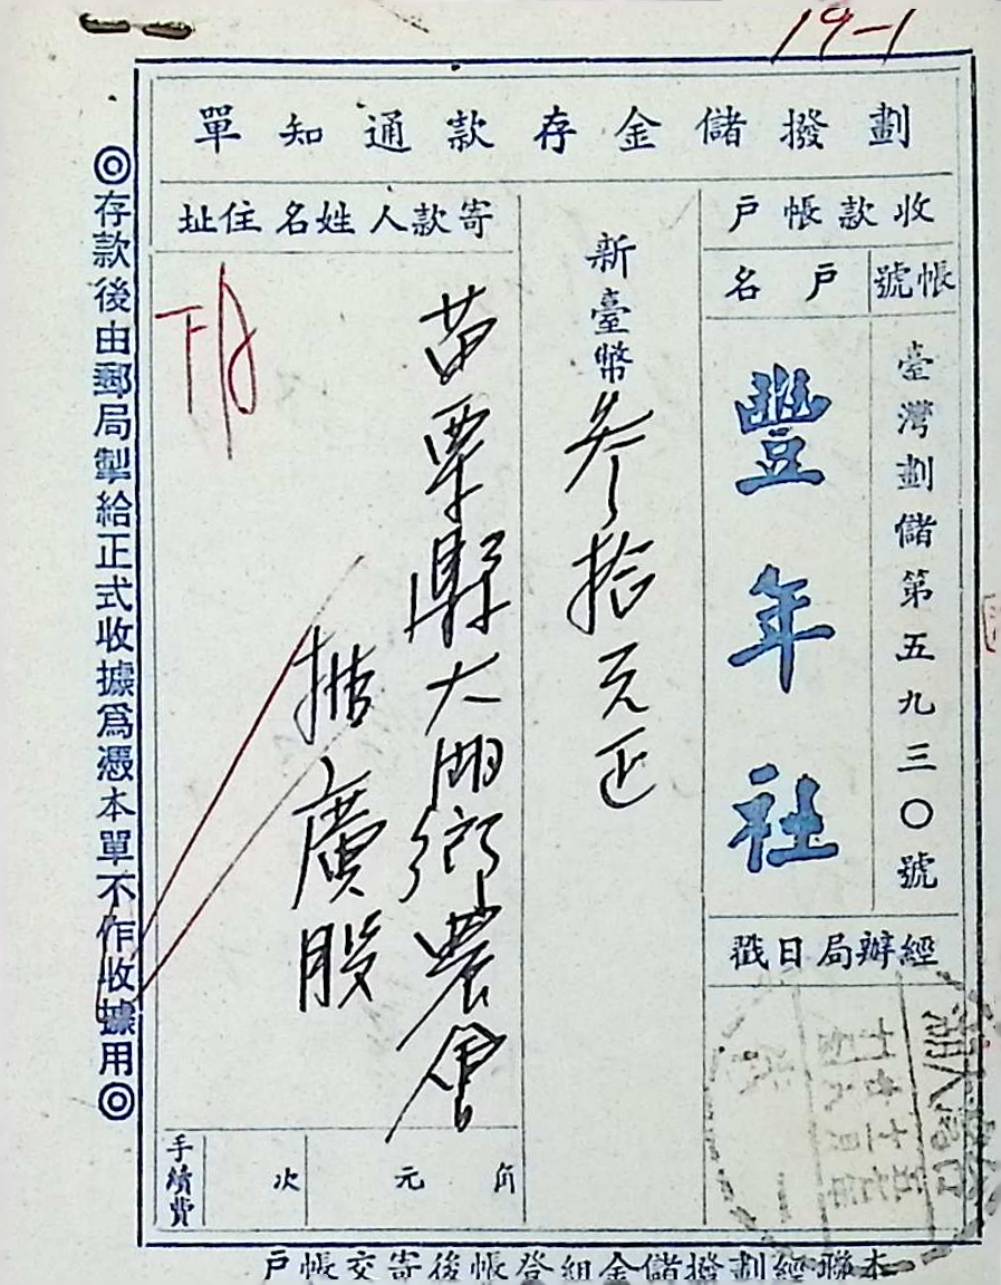 19-1
劃撥儲金存款通知單
收款帳戶
帳號
戶名
臺灣劃儲第五九三〇號
豐年社
經辦局日戳
新臺幣參拾元正
寄款人姓名住址
苗栗縣大湖鄉農會
推廣股
手續費
次
元
角
◎存款後由郵局掣給正式收據爲憑本單不作收據用◎
本聯經劃撥儲金組登帳後寄交帳戶